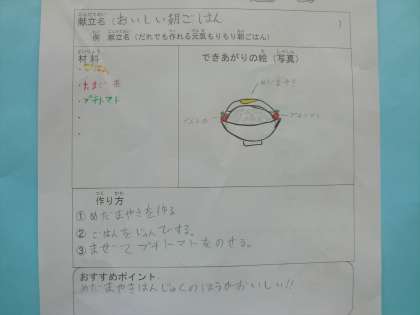 献立名（おいしい朝ごはん）
例 献立名（だれでも作れる元気もりもり朝ごはん）
材料
・ごはん
・たまご
・プチトマト
できあがりの絵（写真）
めだまやき
プチトマト
プチトマト
作り方
①めだまやきを作る
②ごはんをじゅんびする。
③まぜてプチトマトをのせる。
おすすめポイント
めだまやきはんじゅくのほうがおいしい!!